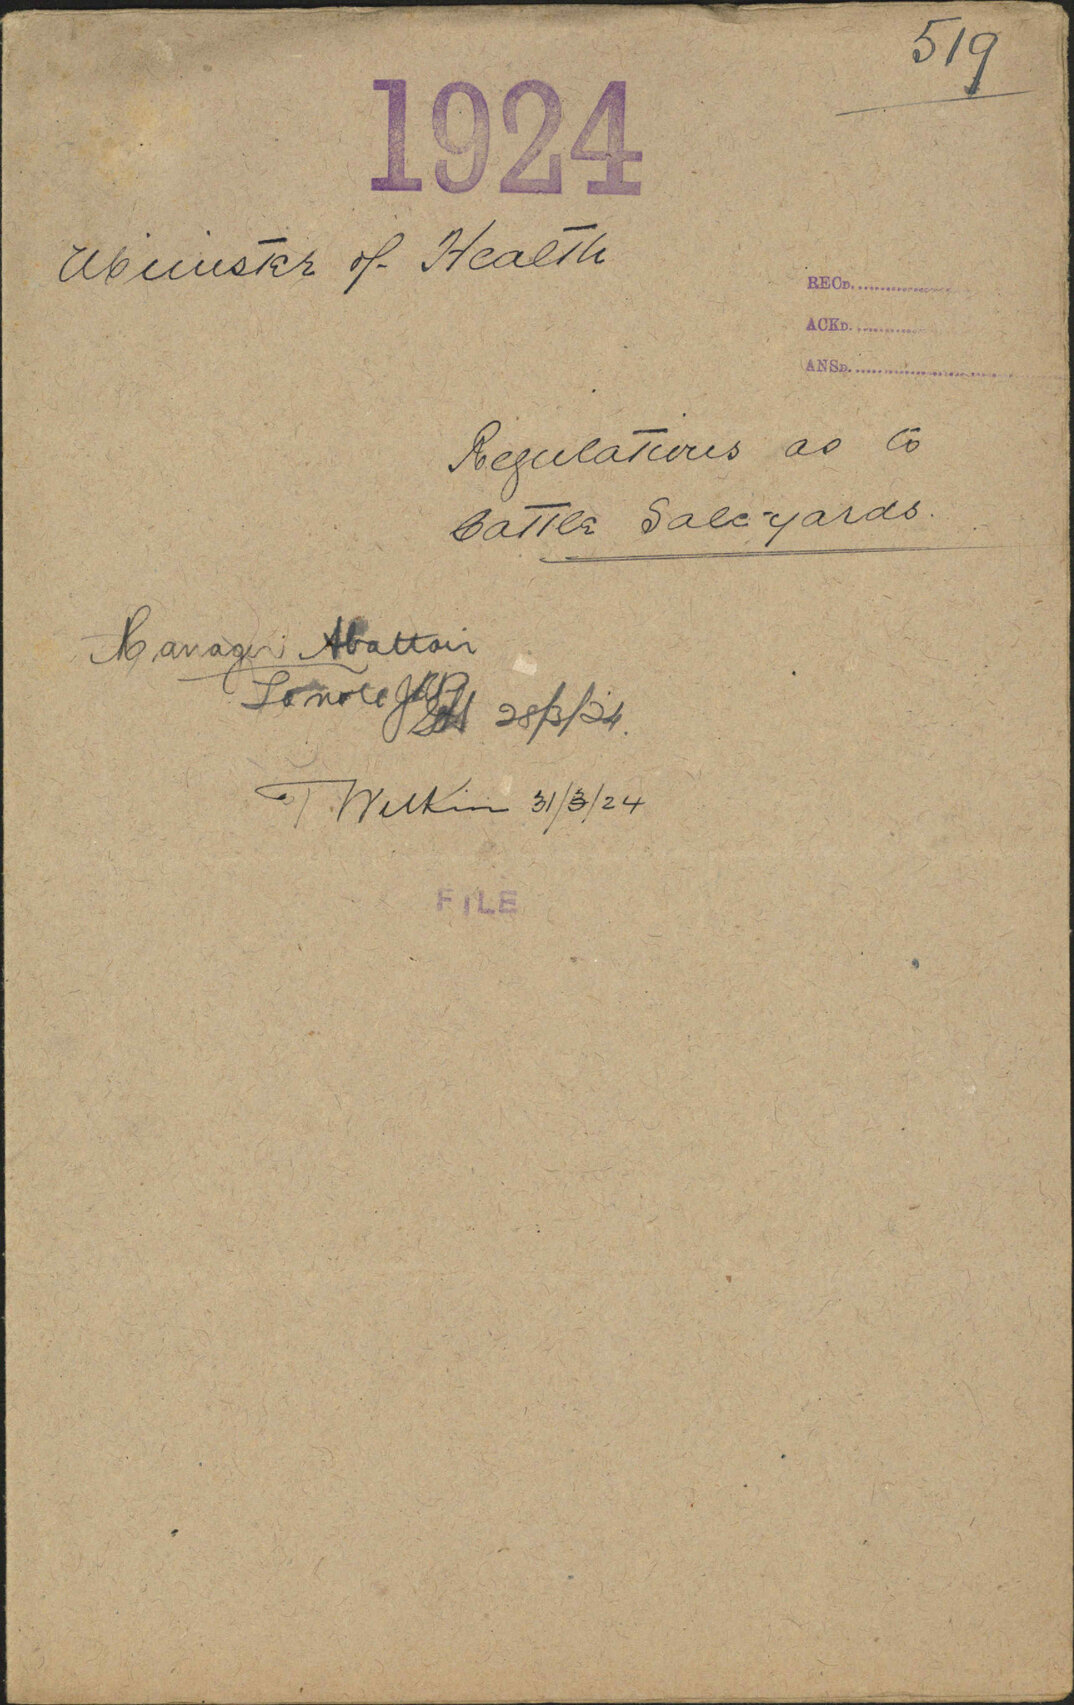 519
1924
Minister of Health
RECD.
ACKD.
ANSD.
Regulations as to
Cattle Sale-yards.
Manager Abattoir
To note 28/3/24.
T Wilkin 31/3/24
FILE